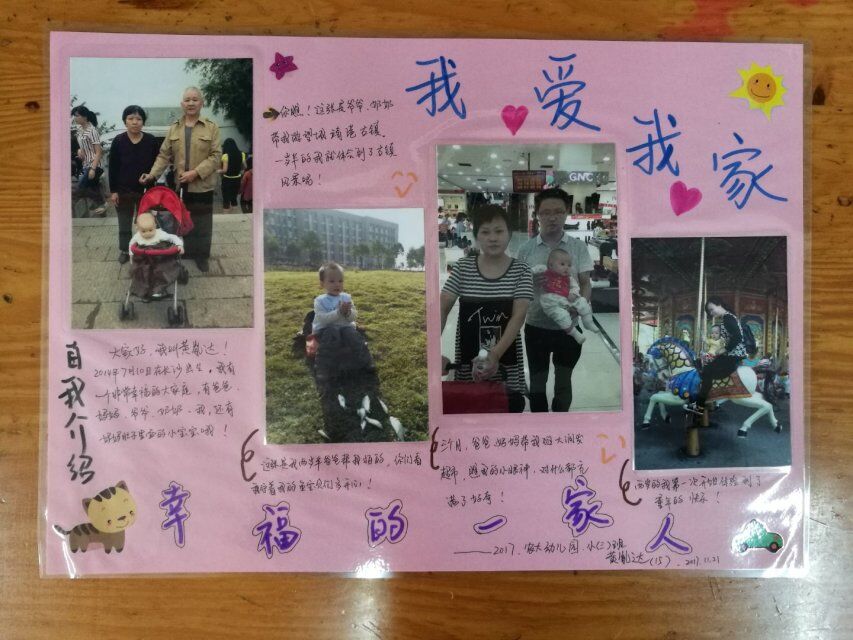 我爱我家
你瞧！这张是爷爷、奶奶
带我游望城靖港古镇、
一岁半的我就体会到了古镇
风景喔！
GNC
Twin
自我介绍
大家好，我叫黄胤达！
2014年7月10日在长沙出生，我有
一个非常幸福的大家庭，有爸爸、
妈妈、爷爷、奶奶、我，还有
妈妈肚子里面的小宝宝哦！
这张是我两岁半爸爸带我拍的，你们看
我背着我的鱼宝贝们多开心！
三个月，爸爸、妈妈带我逛大润发
超市，瞧我的小眼神，对什么都充
满了好奇！
两岁的我第一次开始体验到了
童年的快乐！
幸福的一家人
——2017.农大幼儿园.小(二)班
黄胤达(15). 2017.11.21